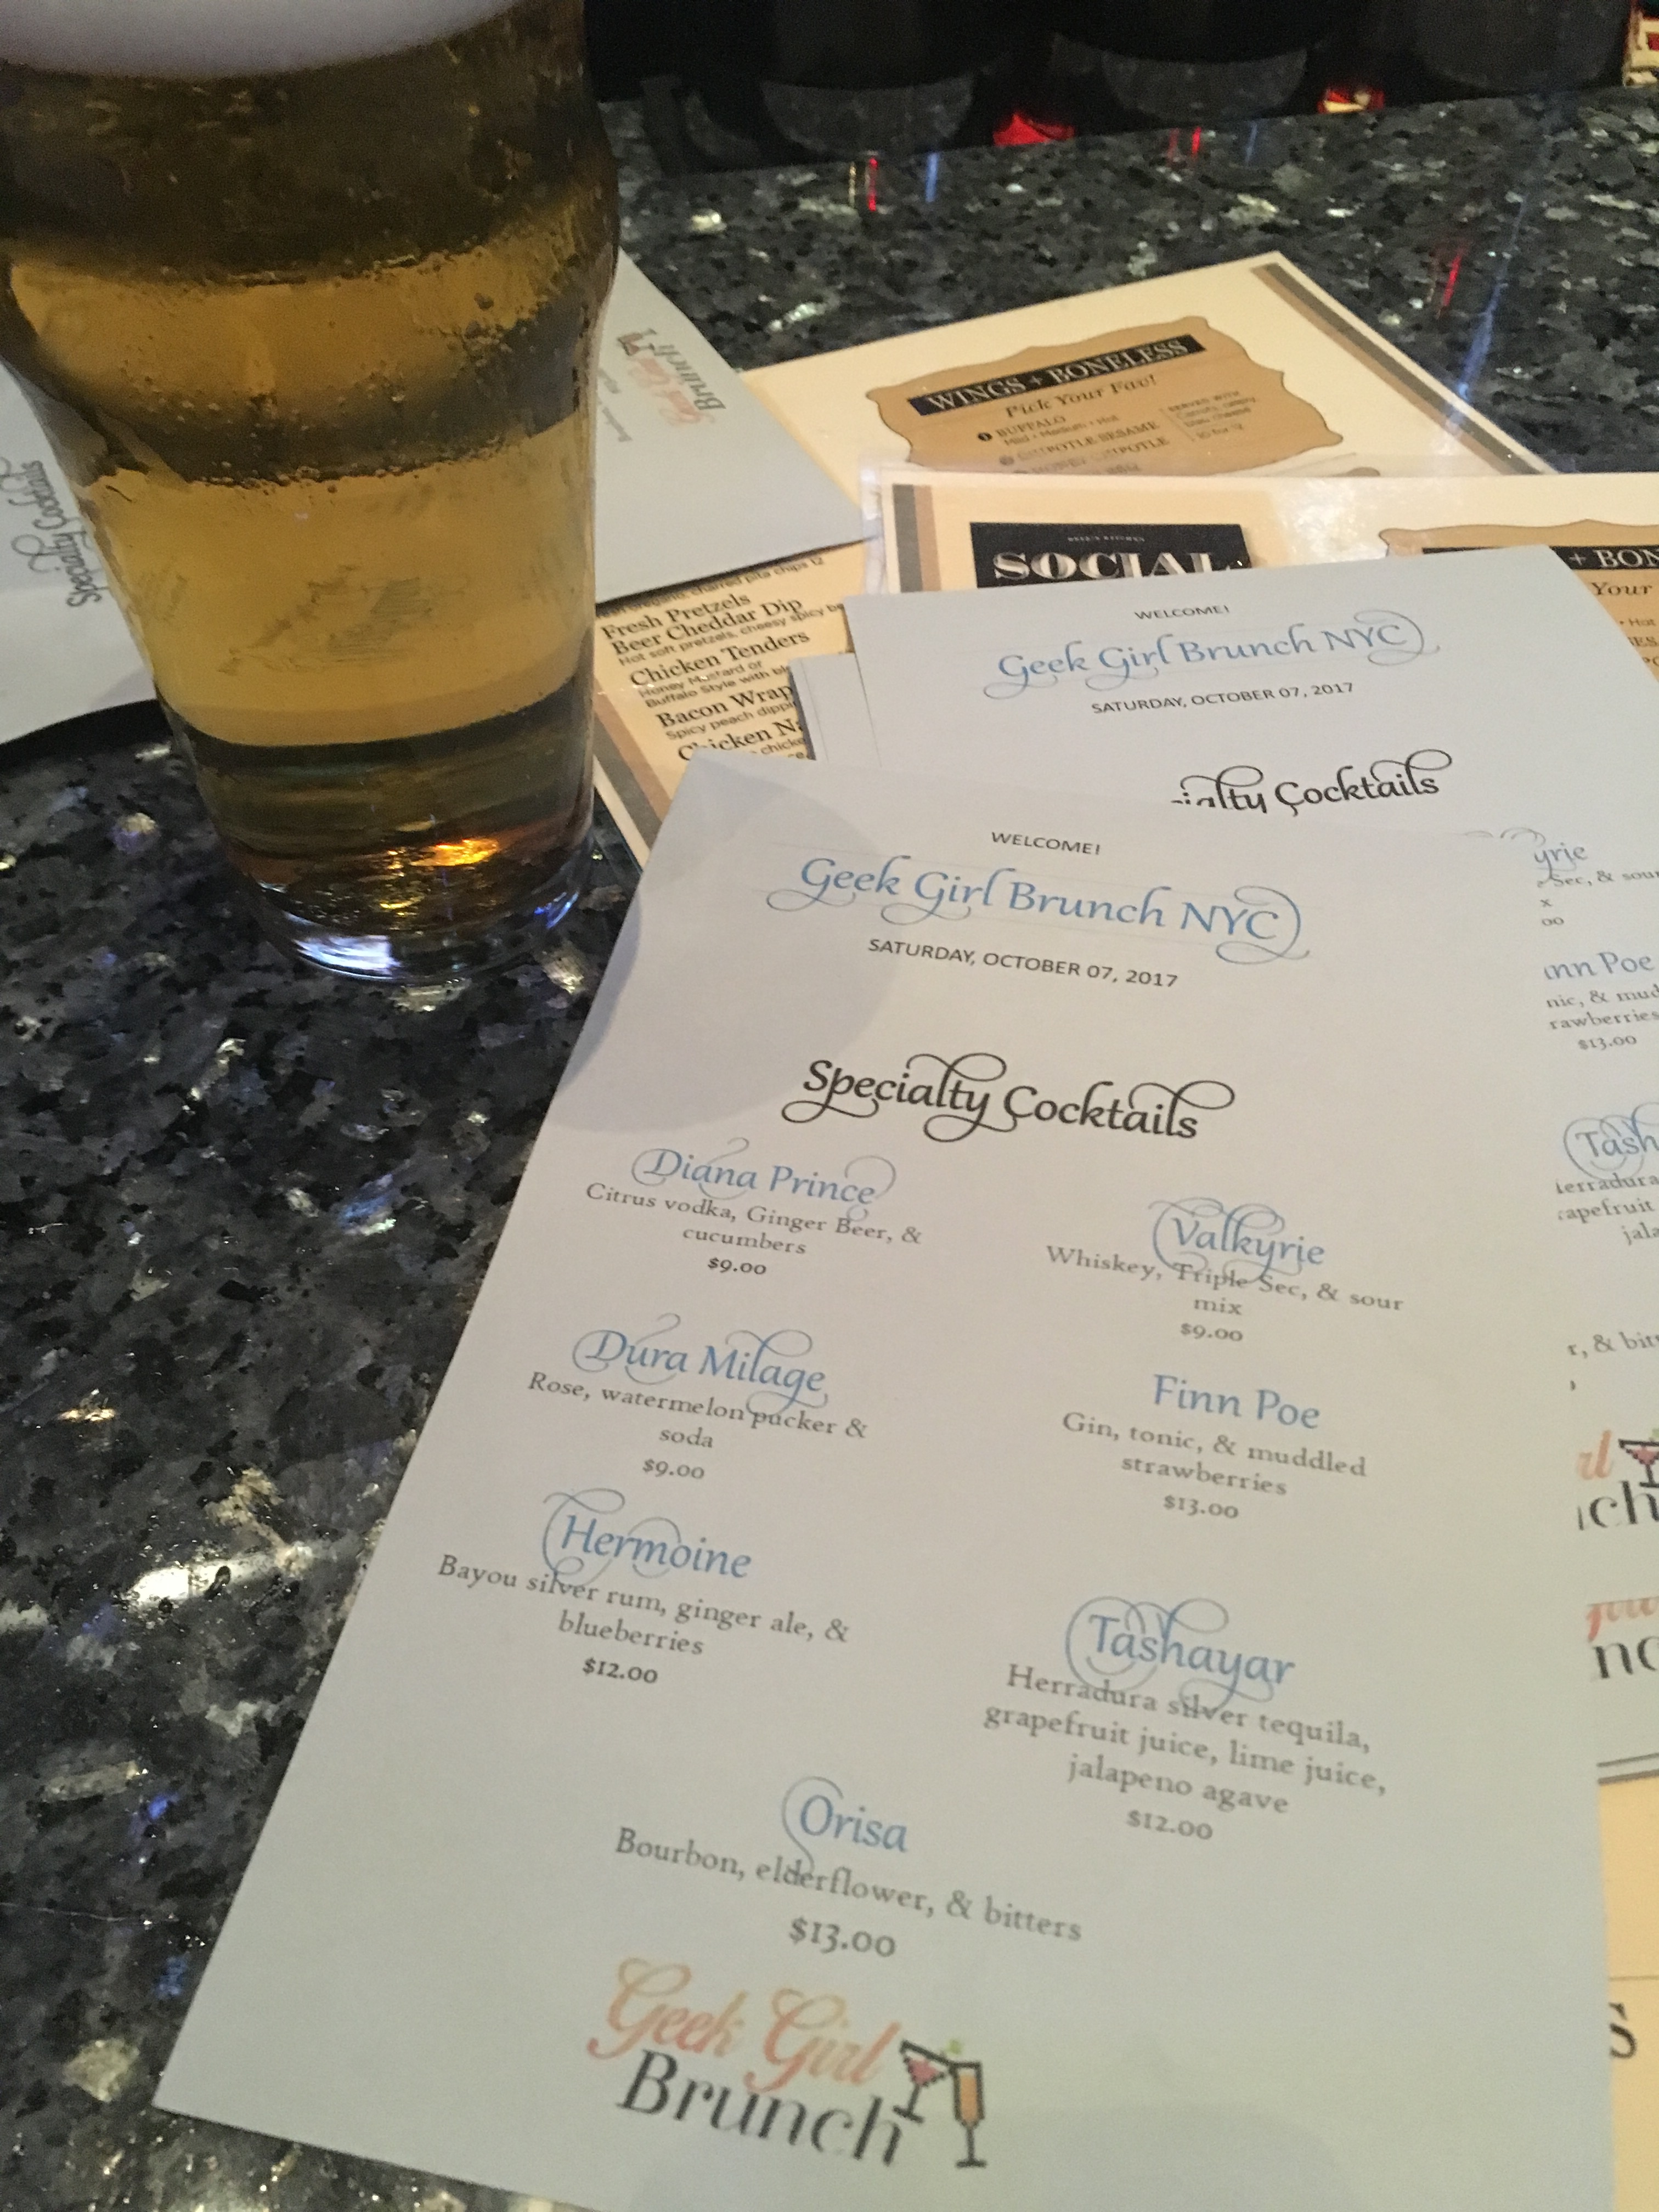 WINGS + BONELESS
Pick Your Fav!
BUFFALO
Mild • Medium • Hot
SERVED WITH
SOCIAL
Specialty Cocktails
Brunch
charred pita chips 12
Fresh Pretzels
Beer Cheddar Dip
Hot soft pretzels, cheesy spicy
Chicken Tenders
Honey Mustard or
Buffalo Style with
Bacon Wrap
Spicy peach
+ BON
Your
WELCOME!
Geek Girl Brunch NYC
SATURDAY, OCTOBER 07, 2017
Cocktails
yrie
Sec, & sour
x
nn Poe
nic, & mud
rawberries
$13.00
Tash
rapefruit
jala
r, & bit
WELCOME!
Geek Girl Brunch NYC
SATURDAY, OCTOBER 07, 2017
Specialty Cocktails
Diana Prince
Citrus vodka, Ginger Beer, &
cucumbers
$9.00
Valkyrie
Whiskey, Triple Sec, & sour
mix
$9.00
Dura Milage
Rose, watermelon pucker &
soda
$9.00
Finn Poe
Gin, tonic, & muddled
strawberries
$13.00
Hermoine
Bayou silver rum, ginger ale, &
blueberries
$12.00
Tashayar
Herradura silver tequila,
grapefruit juice, lime juice,
jalapeno agave
$12.00
Orisa
Bourbon, elderflower, & bitters
$13.00
Geek Girl
Brunch